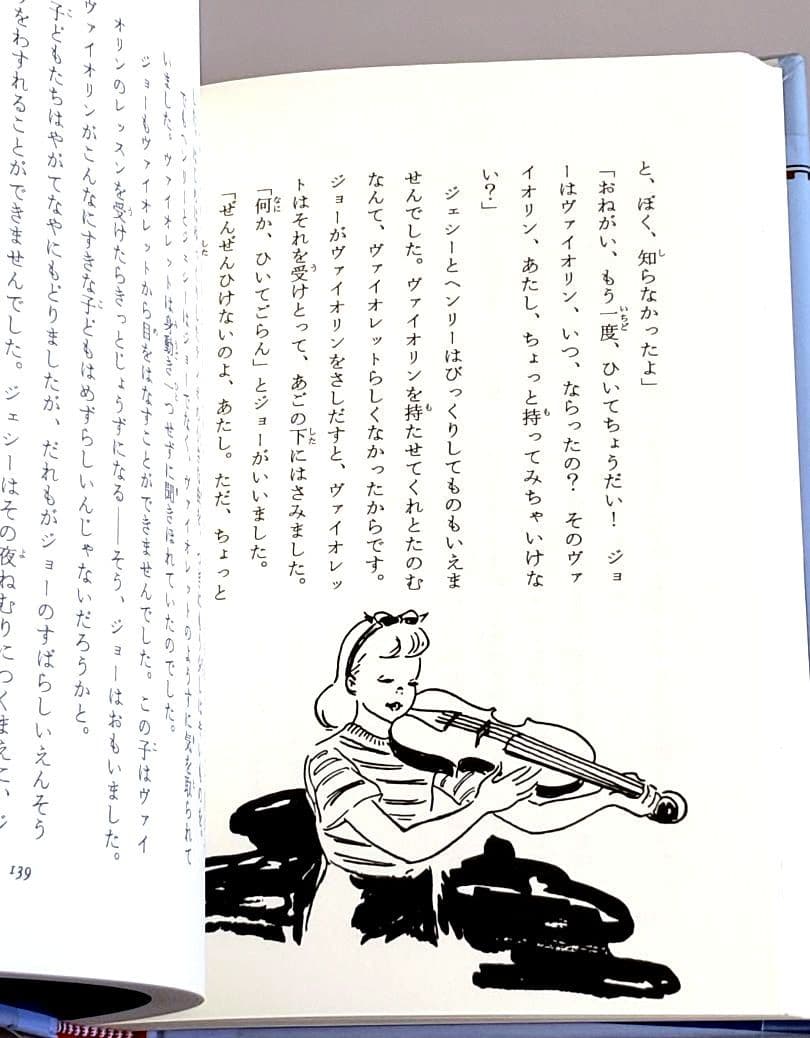 と、ぼく、知らなかったよ」
「おねがい、もう一度、ひいてちょうだい！　ジョ
ーはヴァイオリン、いつ、ならったの？　そのヴァ
イオリン、あたし、ちょっと持ってみちゃいけな
い？」
ジェシーとヘンリーはびっくりしてものもいえま
せんでした。ヴァイオリンを持たせてくれとたのむ
なんて、ヴァイオレットらしくなかったからです。
ジョーがヴァイオリンをさしだすと、ヴァイオレッ
トはそれを受けとって、あごの下にはさみました。
「何か、ひいてごらん」とジョーがいいました。
「ぜんぜんひけないのよ、あたし。ただ、ちょっと
でもヘンリーとジェシーはジョーでなく、ヴァイオレットのようすに気を取られて
いました。ヴァイオレットは身動き一つせずに聞きほれていたのでした。
ジョーもヴァイオレットから目をはなすことができませんでした。この子はヴァイ
オリンのレッスンを受けたらきっとじょうずになる――そう、ジョーはおもいました。
ヴァイオリンがこんなにすきな子どもはめずらしいんじゃないだろうかと。
子どもたちはやがてなやにもどりましたが、だれもがジョーのすばらしいえんそう
をわすれることができませんでした。ジェシーはその夜ねむりにつくまえに、ジ
139